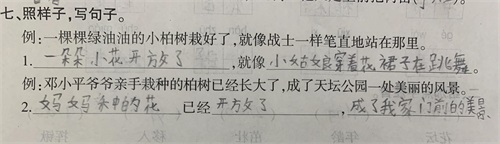 七、照样子,写句子。
例:一棵棵绿油油的小柏树栽好了,就像战士一样笔直地站在那里。
1.一朵朵小花开放了,就像小姑娘穿着花裙子在跳舞。
例:邓小平爷爷亲手栽种的柏树已经长大了,成了天坛公园一处美丽的风景。
2.妈妈种的花已经开放了,成了我家门前的美景